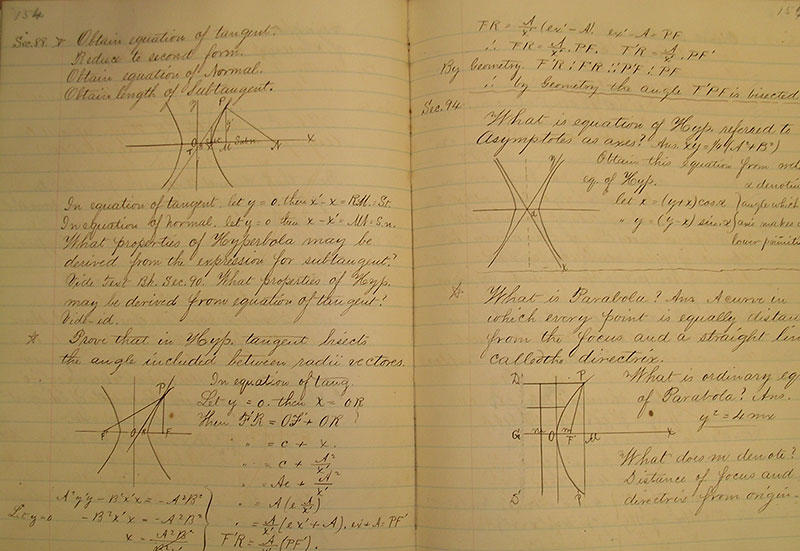 154
Sec. 88. Obtain equation of tangent.
Reduce to second form.
Obtain equation of Normal.
Obtain length of Subtangent.
y
P
y'
X
M
N
In equation of tangent let y = 0. then x'-x = RM = St.
In equation of normal, let y = 0 then x-x' = MN = S.n.
What properties of Hyperbola may be
derived from the expression for subtangent?
Vide Text Bk. Sec. 90. What properties of Hyp.
may be derived from equation of tangent?
Vide-id.
Prove that in Hyp. tangent bisects
the angle included between radii vectores.
P
F'
O
R
F
In equation of tang.
Let y = 0. then x = OR
Then F'R = OF' + OR
" = c + x.
" = c + A²/x'
" = Ae + A²/x'
A²y'y - B²x'x = -A²B²
Let y=0
- B²x'x = -A²B²
" = A/x' (ex' + A). ex'+A = PF'
F'R = A/x' (PF').
FR = A/x' (ex' - A). ex' - A = PF
∴ FR = A/x' . PF. F'R = A/x' . PF'
By Geometry F'R : FR :: PF' : PF
∴ by Geometry the angle F'PF is bisected
Sec. 94.
What is equation of Hyp. referred to
Asymptotes as axes? Ans. xy = ¼(A²+B²)
Obtain this Equation from
eq. of Hyp.
let x = (y+x) cos α
" y = (y-x) sin α
angle which
axis makes
lower
y
x
What is Parabola? Ans. A curve in
which every point is equally
from the focus and a straight
called the directrix.
D'
P
G
O
m
F
M
X
D'
P
What is ordinary eq
of Parabola? Ans.
y² = 4mx
What does m denote?
Distance of focus and
directrix from origin-